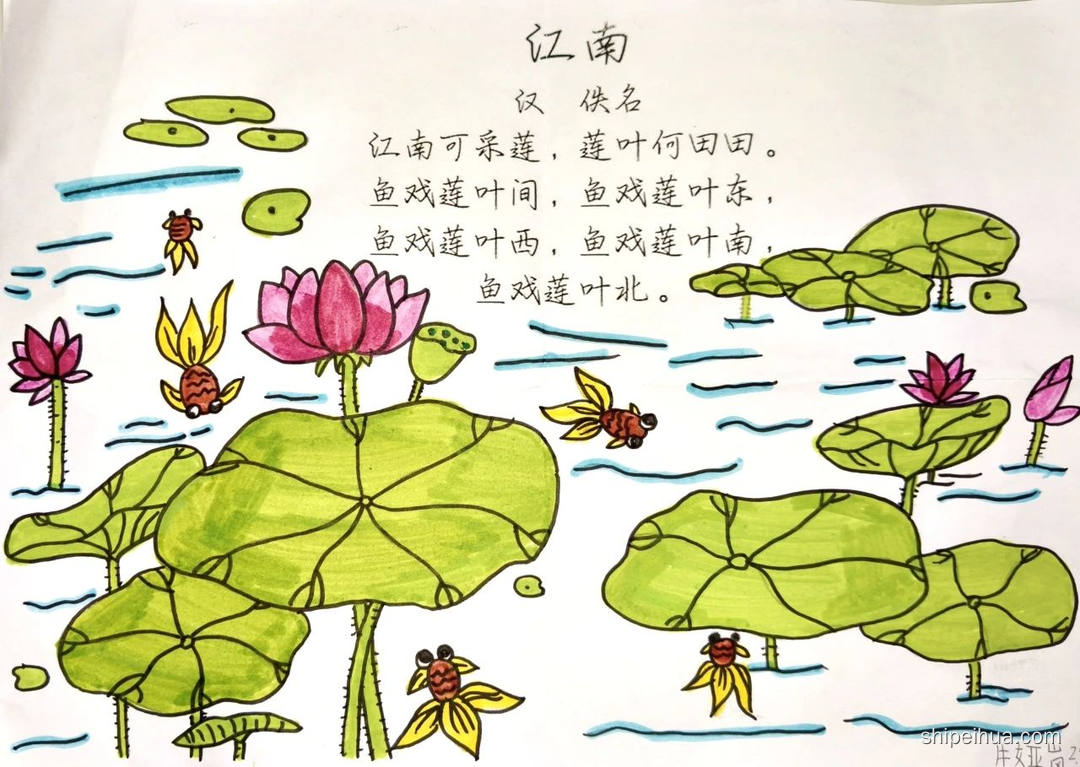 江南
汉 佚名
江南可采莲，莲叶何田田。
鱼戏莲叶间，鱼戏莲叶东，
鱼戏莲叶西，鱼戏莲叶南，
鱼戏莲叶北。
shipeihua.com